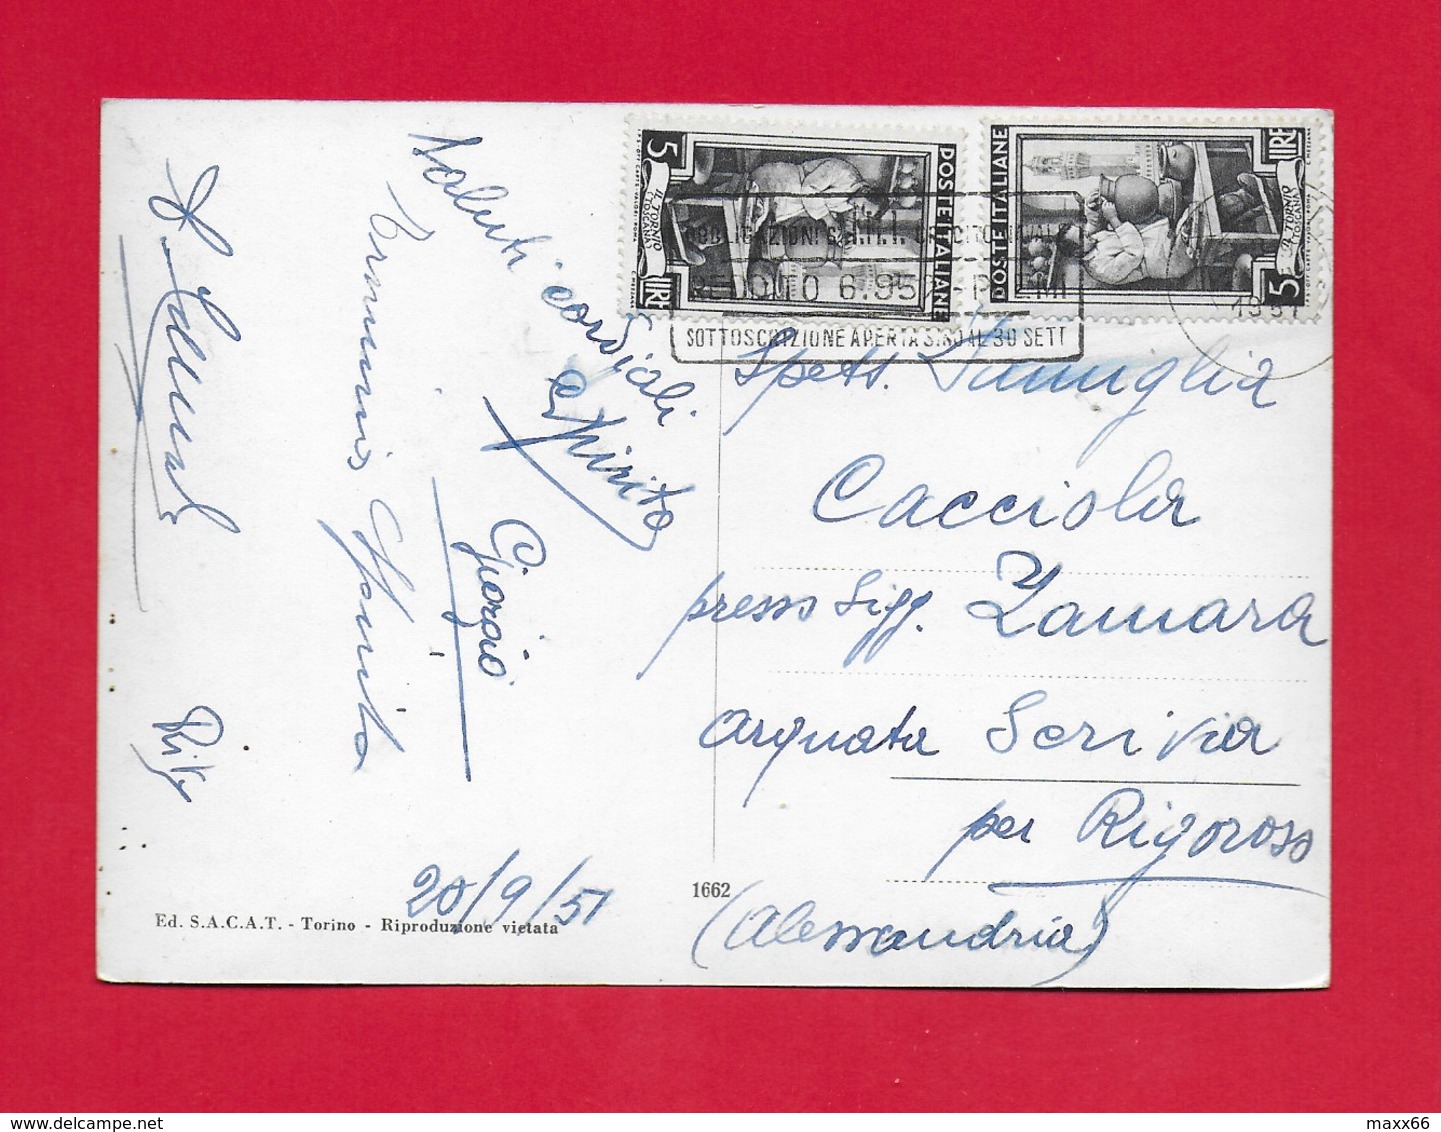 Saluti cordiali
Spirito
Giorgio
Spirito
Rity
20/9/51
Ed. S.A.C.A.T. - Torino - Riproduzione vietata
1662
5
POSTE ITALIANE
IL TORNIO
TOSCANA
LIRE
POSTE ITALIANE
LIRE
IL TORNIO
TOSCANA
5
REDDITO 6.95
SOTTOSCRIZIONE APERTA SINO AL 30 SETT
1951
Spett. Famiglia
Cacciola
presso Sigg. Zamara
Arquata Scrivia
per Rigoroso
(Alessandria)
delcampe.net
maxx66